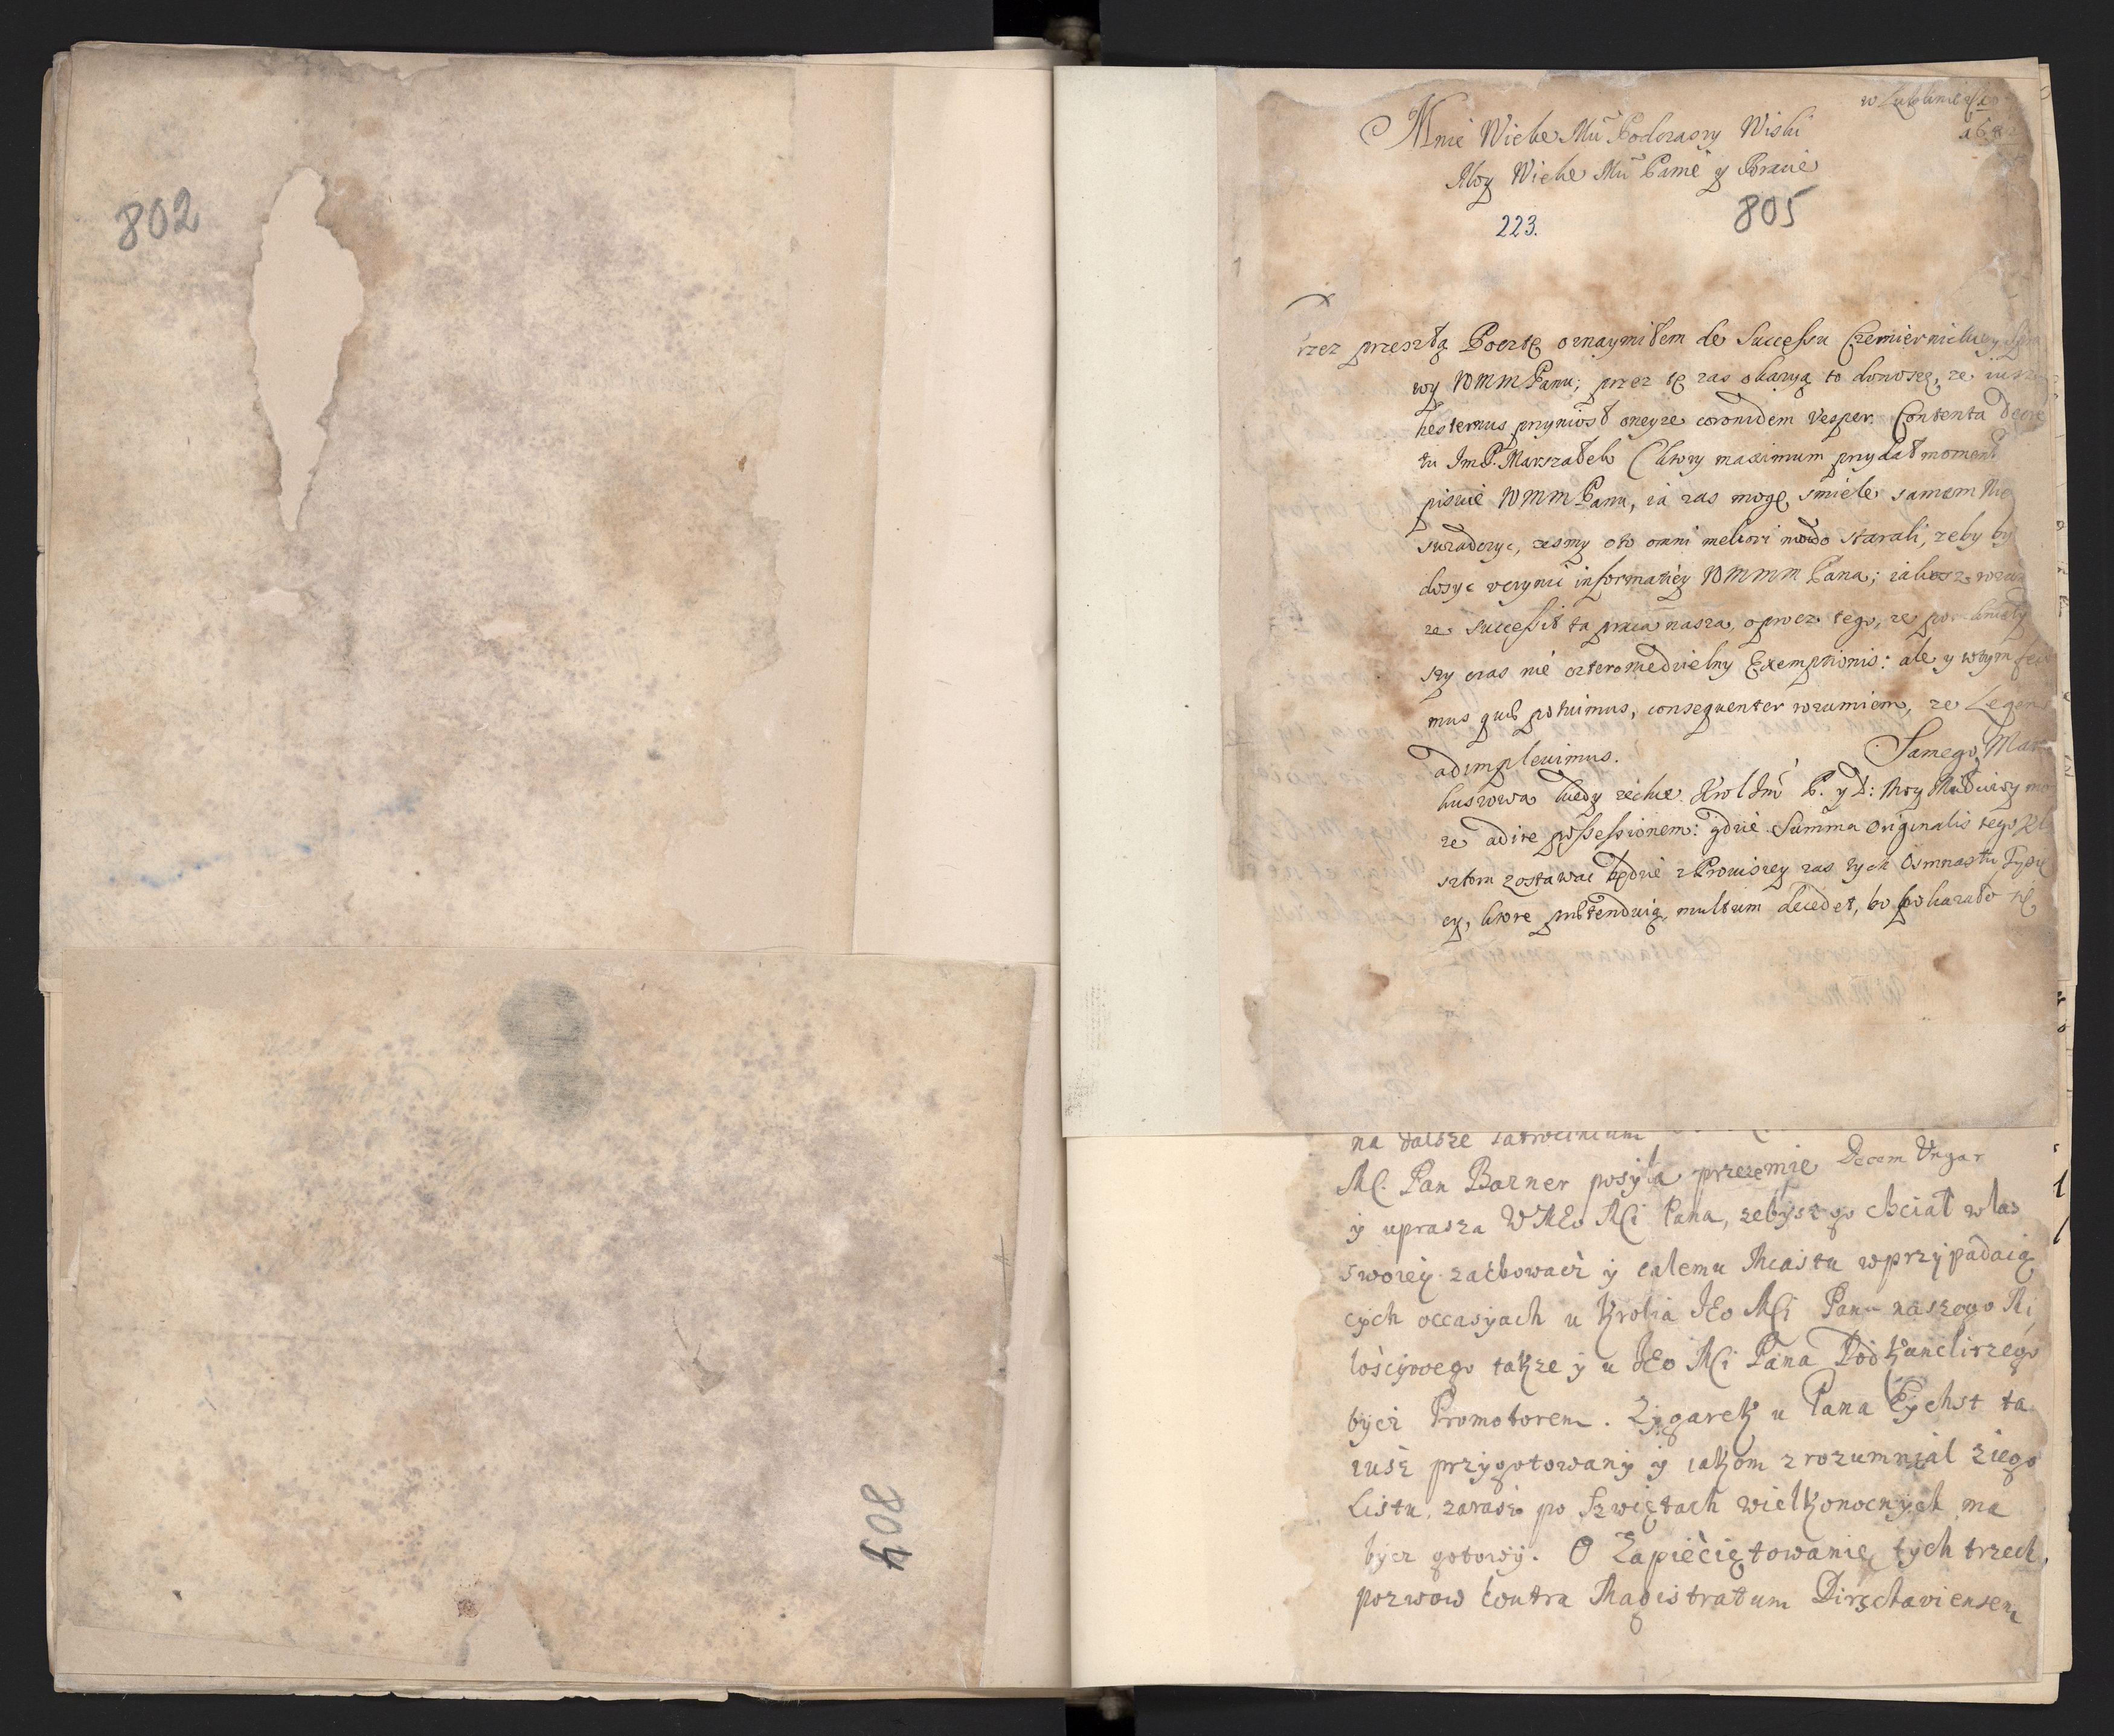 802
804
w Lublinie
Mnie Wielce Mũ Podczaszy Wiski
Moy Wielce Mũ Panie y Bracie
805
223.
1
rzez przeszłą Pocztę oznaymiłem de Successu Czemiernickiey
wy WMM Panu; przez tę zas okazyą to donoszę, ze iusz
hesternus przyniosł oneyze coronidem vesper. Contenta Decre
tu ImP. Marszałek (ktory maximum przydał moment
pisze WMM Panu, ia zas mogę smiele samem
swiadczyc, zesmy oto omni meliori modo starali, zeby by
dosyc uczynić informatiey WMMM Pana; iakosz
ze successit ta praca nasza, oprocz tego, ze
szy czas nie czteroniedzielny Exemptionis: ale y wtym feci
mus quod potuimus, consequenter rozumiem, ze Legem
adimplevimus. Samego Mar
kuszowa kiedy zechce Krol Jm̃ P. y D: Moy Miłciwy mo
ze adire possessionem: gdzie Summa Originalis tego
sztom zostawac będzie z Prowiszey zas tych Osmnastu Tysię
cy, ktore prætenduią, multum decedet, bo pokazało się,
na dalsze
Mć. Pan Barner posyła przezemie Decem Ungar
ÿ uprasza WMEo Mći Pana, zebysz go chciał wlas
sworeÿ zachowacz ÿ calemu Miastu wprzÿpadaią
cÿch occasÿach u Krolia JEo Mći Pana naszego Mi
loscÿwego takze ÿ u JEo Mći Pana Podkanclirzego
bÿcz Promotorem. Zÿgarek u Pana Eÿchst ta
iusz przÿgotowanÿ ÿ iakom zrozumnial ziego
Listu, zarasz po Szwiętach wielkonocnÿch ma
bÿcz gotowÿ. O Zapieczietowanie tÿch trzech
pozwow contra Magistratum Dirschaviensem